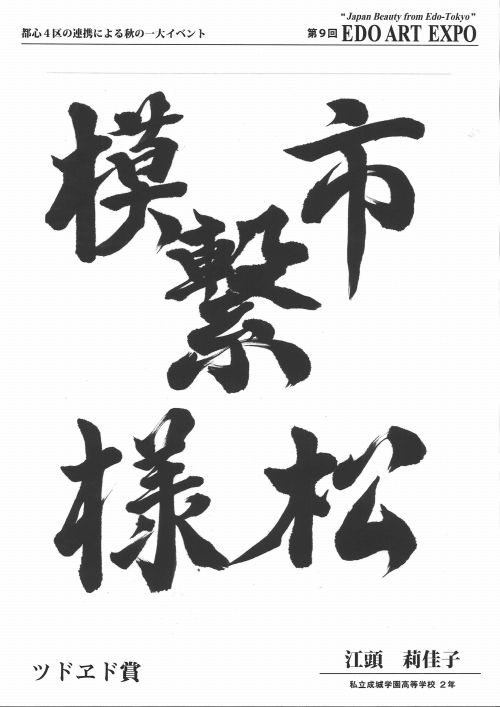 "Japan Beauty from Edo-Tokyo"
都心4区の連携による秋の一大イベント
第9回 EDO ART EXPO
市松
繋
模様
ツドヱド賞
江頭 莉佳子
私立成城学園高等学校 2年